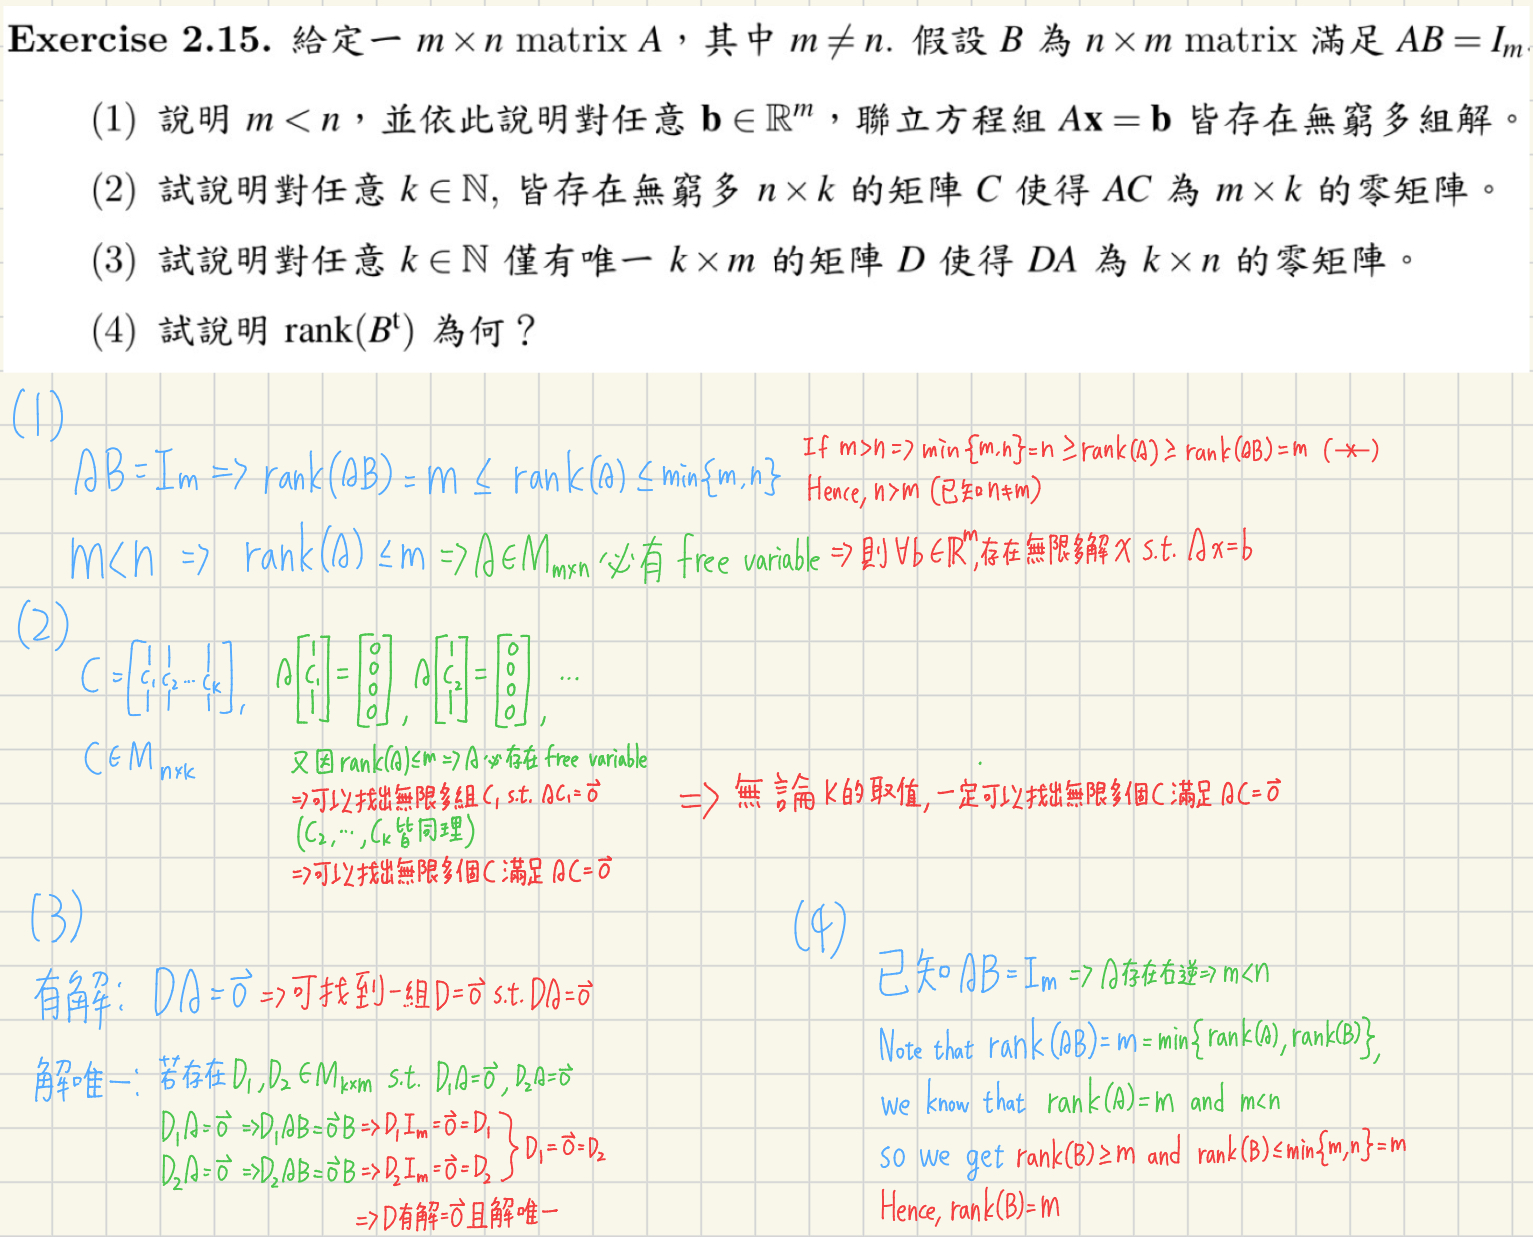 Exercise 2.15. 給定一 m × n matrix A，其中 m ≠ n. 假設 B 為 n × m matrix 滿足 AB = I_m.
(1) 說明 m < n，並依此說明對任意 b ∈ ℝ^m，聯立方程組 Ax = b 皆存在無窮多組解。
(2) 試說明對任意 k ∈ ℕ, 皆存在無窮多 n × k 的矩陣 C 使得 AC 為 m × k 的零矩陣。
(3) 試說明對任意 k ∈ ℕ 僅有唯一 k × m 的矩陣 D 使得 DA 為 k × n 的零矩陣。
(4) 試說明 rank(B^t) 為何？
(1)
AB = I_m => rank(AB) = m ≤ rank(A) ≤ min{m,n}
If m>n => min{m,n}=n ≥ rank(A) ≥ rank(AB)=m (→←)
Hence, n>m (已知n≠m)
m<n => rank(A) ≤ m => A∈M_m×n 必有 free variable => 則 ∀b∈ℝ^m, 存在無限多解 x s.t. Ax=b
(2)
C = [c_1 c_2 ... c_k], A[c_1] = [0 0 0 0], A[c_2] = [0 0 0 0], ...
C∈M_n×k
又因 rank(A)≤m => A必存在 free variable
=>可以找出無限多組 C_1 s.t. AC_1=0⃗
(C_2, ..., C_k 皆同理)
=>可以找出無限多個C 滿足 AC=0⃗
=> 無論 k的取值, 一定可以找出無限多個C 滿足 AC=0⃗
(3)
有解: DA=0⃗ => 可找到一組 D=0⃗ s.t. DA=0⃗
解唯一: 若存在 D_1, D_2 ∈ M_k×m s.t. D_1A=0⃗, D_2A=0⃗
D_1A=0⃗ => D_1AB=0⃗B => D_1I_m=0⃗=D_1
D_2A=0⃗ => D_2AB=0⃗B => D_2I_m=0⃗=D_2
} D_1=0⃗=D_2
=> D有解=0⃗ 且解唯一
(4)
已知 AB = I_m => A存在右逆 => m<n
Note that rank(AB)=m=min{rank(A), rank(B)},
we know that rank(A)=m and m<n
so we get rank(B)≥m and rank(B)≤min{m,n}=m
Hence, rank(B)=m